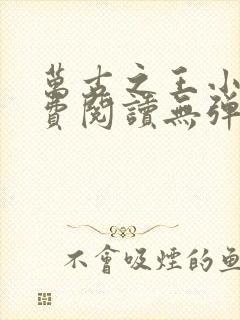 萬古之王小
費閱讀無彈
不會吸煙的魚